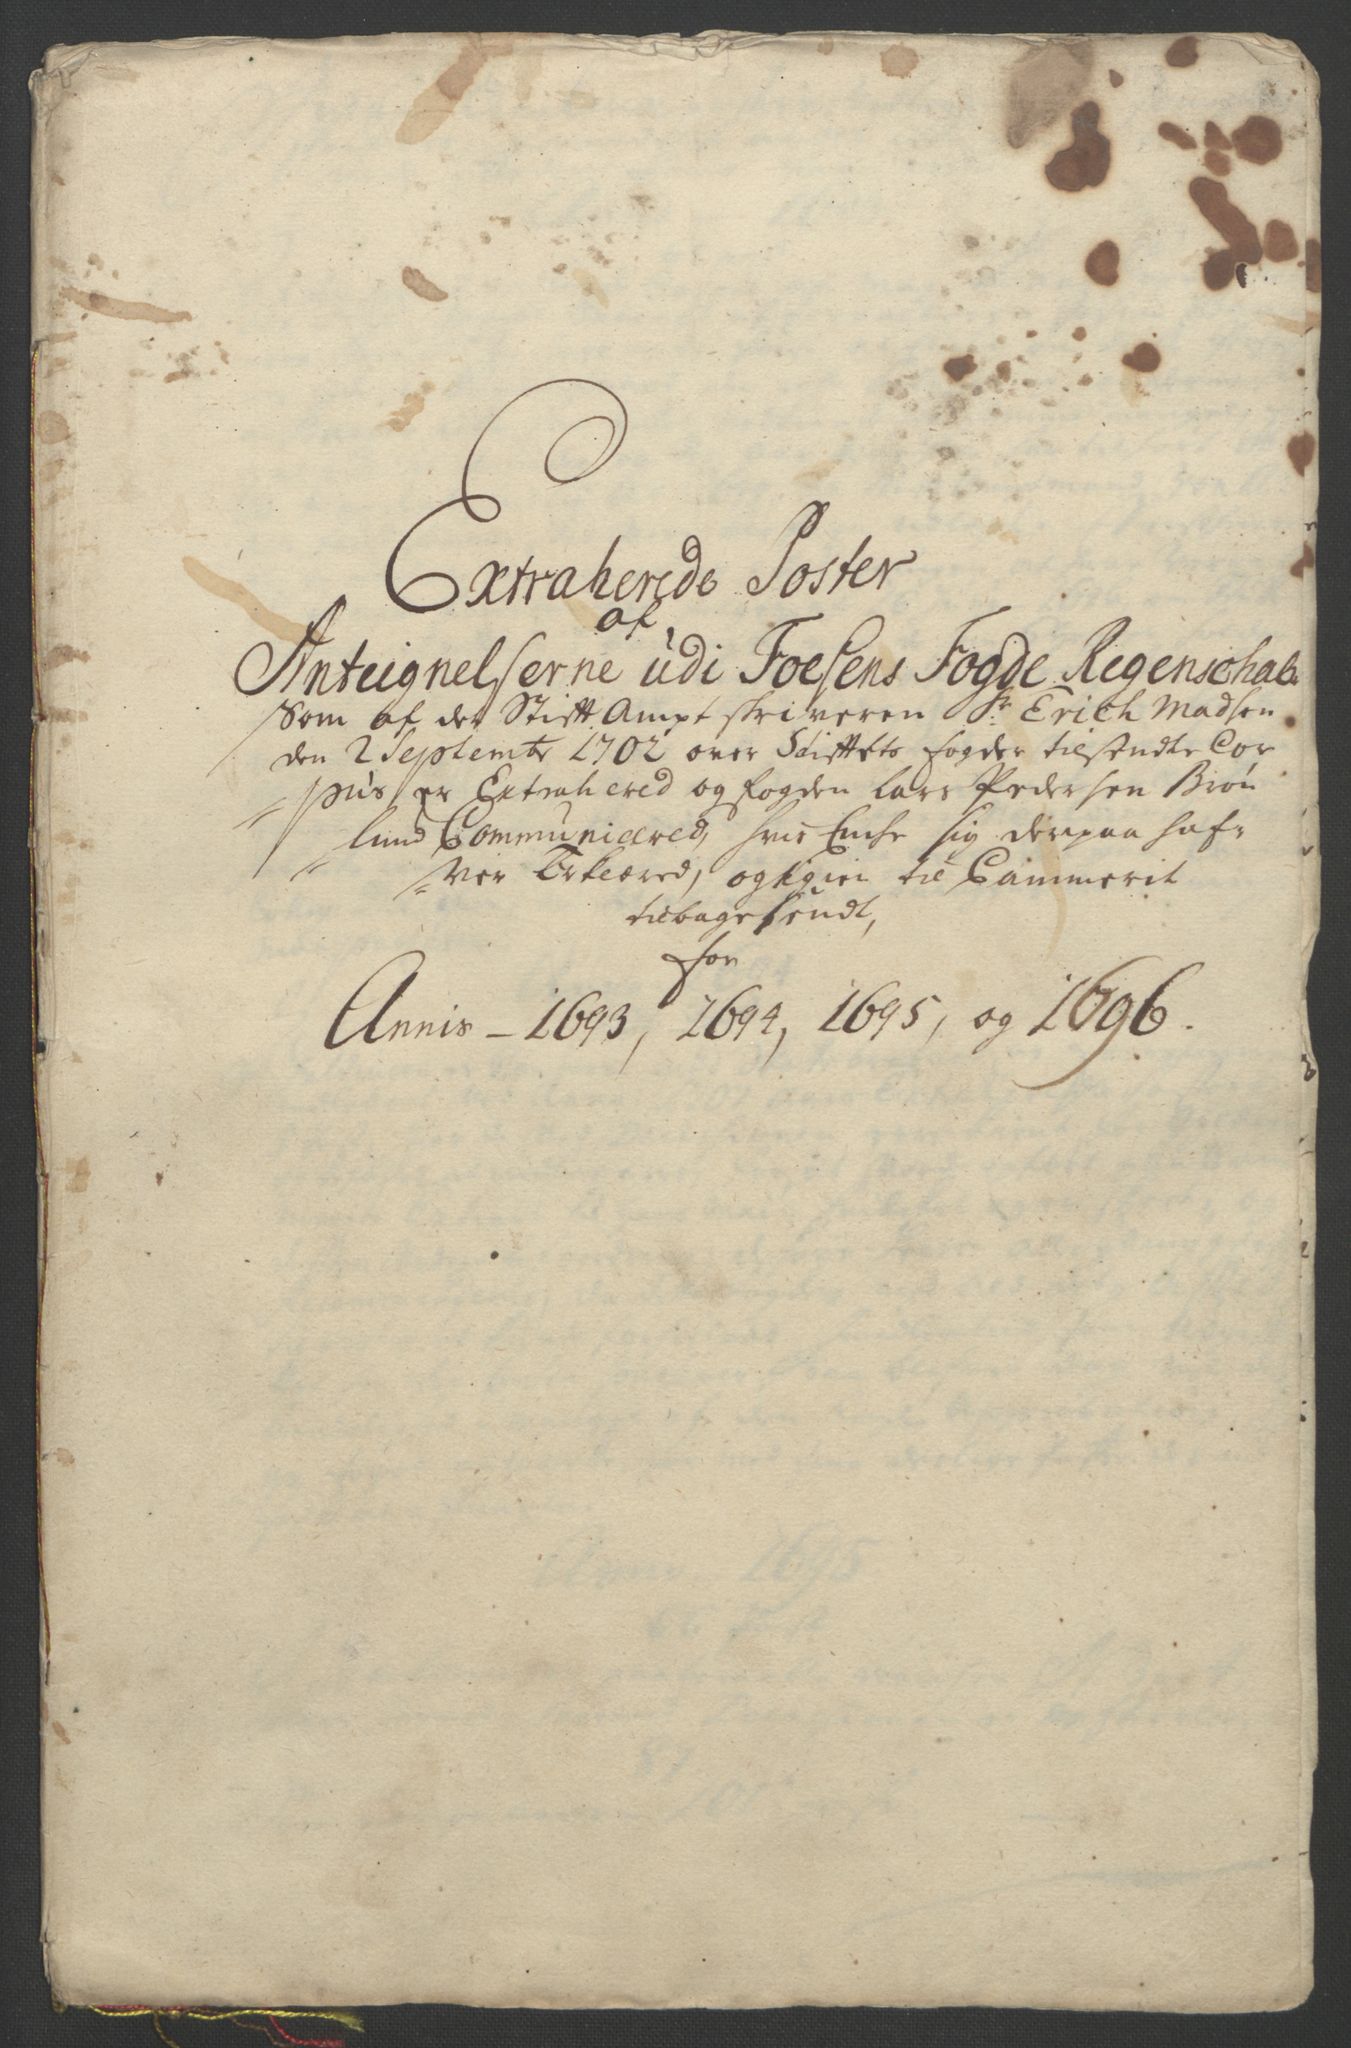 Extraherede Poster
af
Anteignelserne udi Foesens Fogde Regenschab
Som af der Stifft Ampt skriveren Sr. Erich Madsen
den 2 Septembr 1702 over Stifftets fogder tilsendte Cor
pus er Extrahered og fogden Lars Pedersen Brøn
lund Communicered, hvis sig derpaa haf
ver Erklæred, og igien til Cammerit
tilbagesendt,
for
Annis - 1693, 1694, 1695, og 1696.